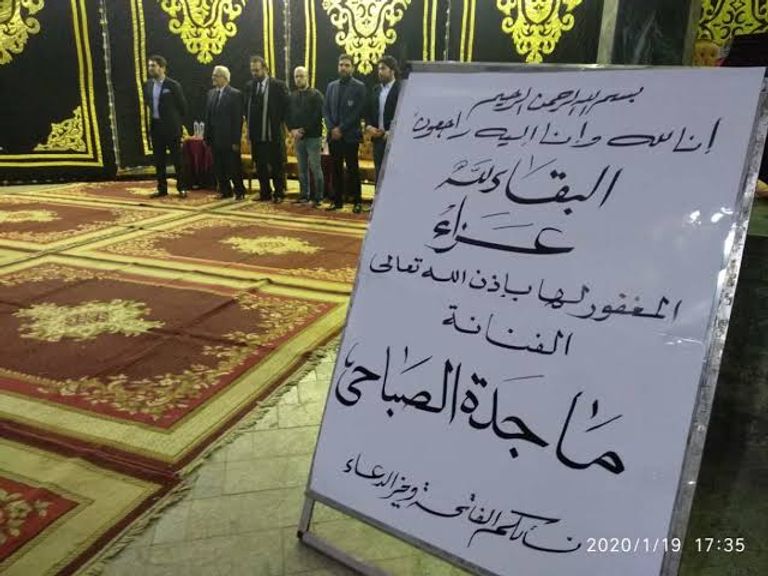 بسم الله الرحمن الرحيم
إنا لله وانا إليه راجعون
البقاء لله
عزاء
المغفور لها بإذن الله تعالى
الفنانة
ماجدة الصباحى
نسألكم الفاتحة وخير الدعاء
2020/1/19 17:35